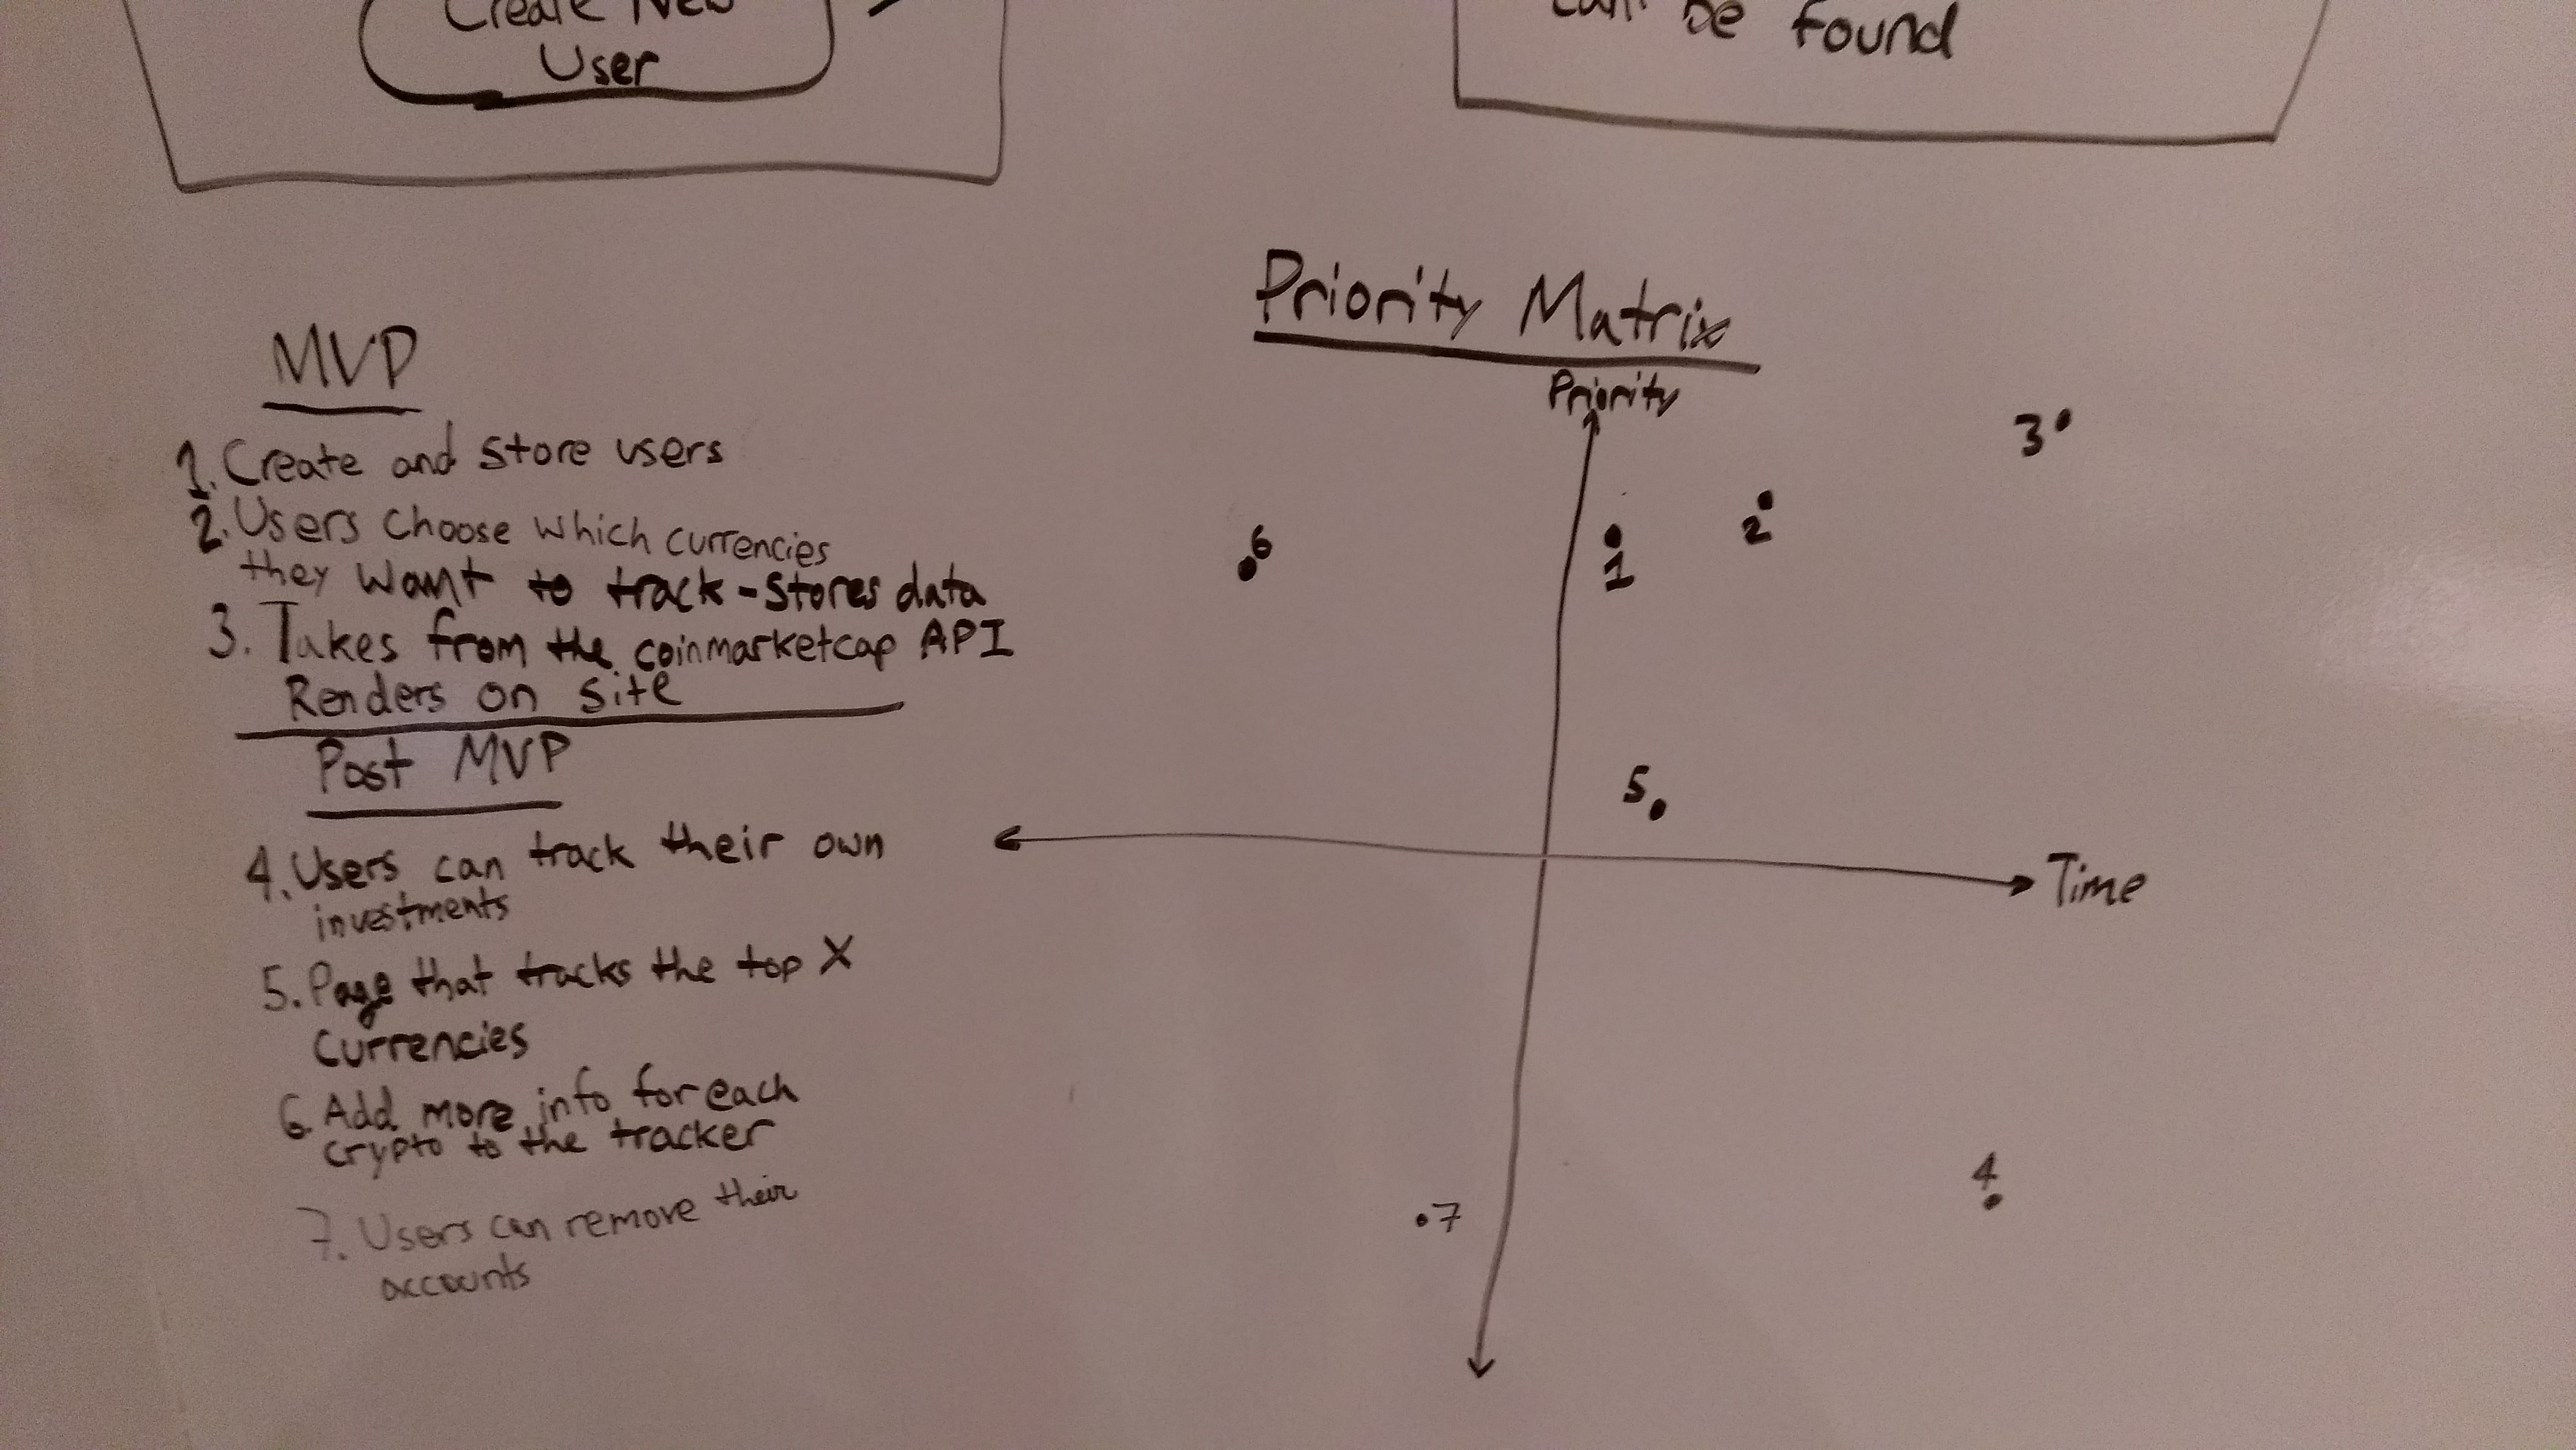 Create New
User
can't be found
MVP
1. Create and store users
2. Users choose which currencies
they want to track - stores data
3. Takes from the coinmarketcap API
Renders on site
Post MVP
4. Users can track their own
investments
5. Page that tracks the top X
Currencies
6. Add more info for each
crypto to the tracker
7. Users can remove their
accounts
Priority Matrix
Priority
3
2
6
1
5
Time
4
7